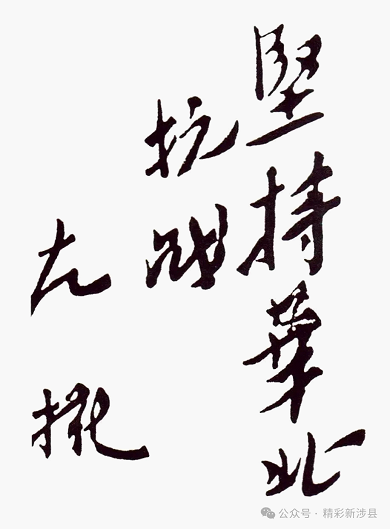 堅持華北
抗战
左权
公众号·精彩新涉县